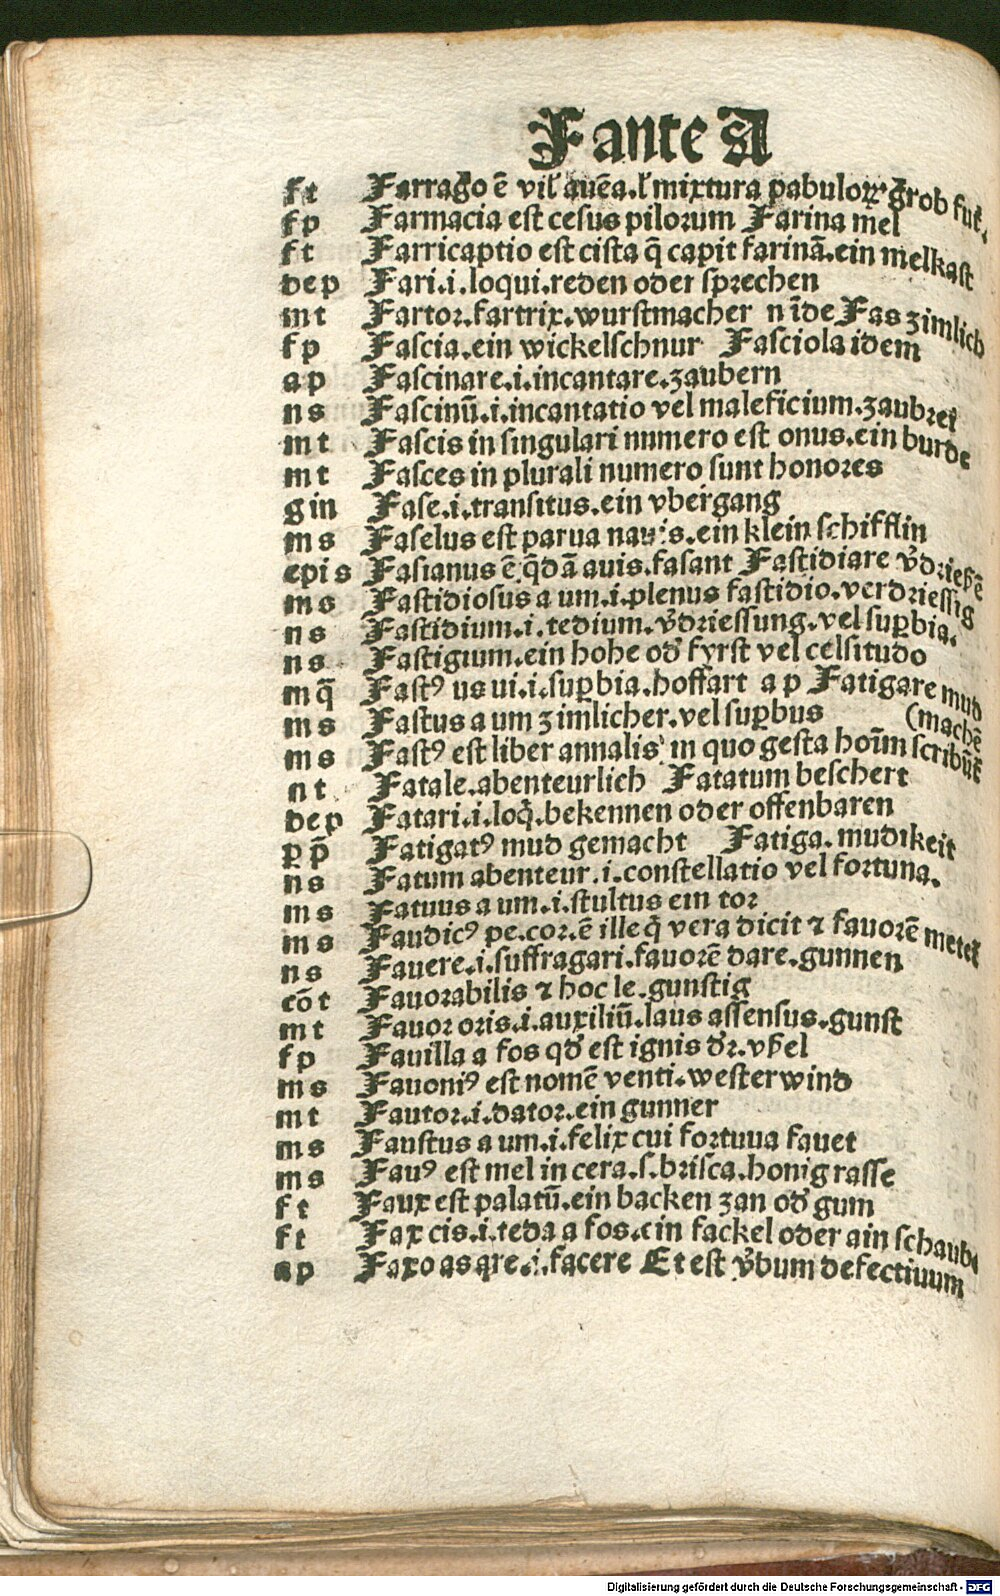 F ante A
ft Farrago ē vil' auēa.l' mixtura pabuloꝝ grob fut.
fp Farmacia est cesus pilorum Farina mel
ft Farricaptio est cista q̄ capit farinā.ein melkast
dep Fari.i.loqui.reden oder sprechen
mt Fartor.fartrix.wurstmacher n īde Fas zimlich
fp Fascia.ein wickelschnur Fasciola idem
ap Fascinare.i.incantare.zaubern
ns Fascinū.i.incantatio vel maleficium.zaubrei
mt Fascis in singulari numero est onus.ein burde
mt Fasces in plurali numero sunt honores
gin Fase.i.transitus.ein vbergang
ms Faselus est parua nauis.ein klein schifflin
epis Fasianus ē q̄dā auis.fasant Fastidiare v̄drießē
ms Fastidiosus a um.i.plenus fastidio.verdriessig
ns Fastidium.i.tedium.v̄driessung.vel suꝑbia.
ns Fastigium.ein hohe od' fyrst vel celsitudo
mq̄ Fastꝰ us ui.i.suꝑbia.hoffart ap Fatigare mud
ms Fastus a um zimlicher.vel suꝑbus (machē
ms Fastꝰ est liber annalis in quo gesta hoīm scribūt
nt Fatale.abenteurlich Fatatum beschert
dep Fatari.i.loq̄.bekennen oder offenbaren
ꝑp̄ Fatigatꝰ mud gemacht Fatiga.mudikeit
ns Fatum abenteur.i.constellatio vel fortuna.
ms Fatuus a um.i.stultus ein tor
ms Faudicꝰ pe.cor.ē ille q̄ vera dicit ⁊ fauorē metet
ns Fauere.i.suffragari.fauorē dare.gunnen
cōt Fauorabilis ⁊ hoc le.gunstig
mt Fauor oris.i.auxiliū.laus assensus.gunst
fp Fauilla a fos qd' est ignis dr.vßel
ms Fauoniꝰ est nomē venti.westerwind
mt Fautor.i.dator.ein gunner
ms Faustus a um.i.felix cui fortuua fauet
ms Fauꝰ est mel in cera.s.brisca.honig rasse
ft Faux est palatū.ein backen zan od' gum
ft Fax cis.i.teda a fos.ein fackel oder ain schaube
ap Faxo as are.i.facere Et est v̄bum defectiuum
Digitalisierung gefördert durch die Deutsche Forschungsgemeinschaft - DFG